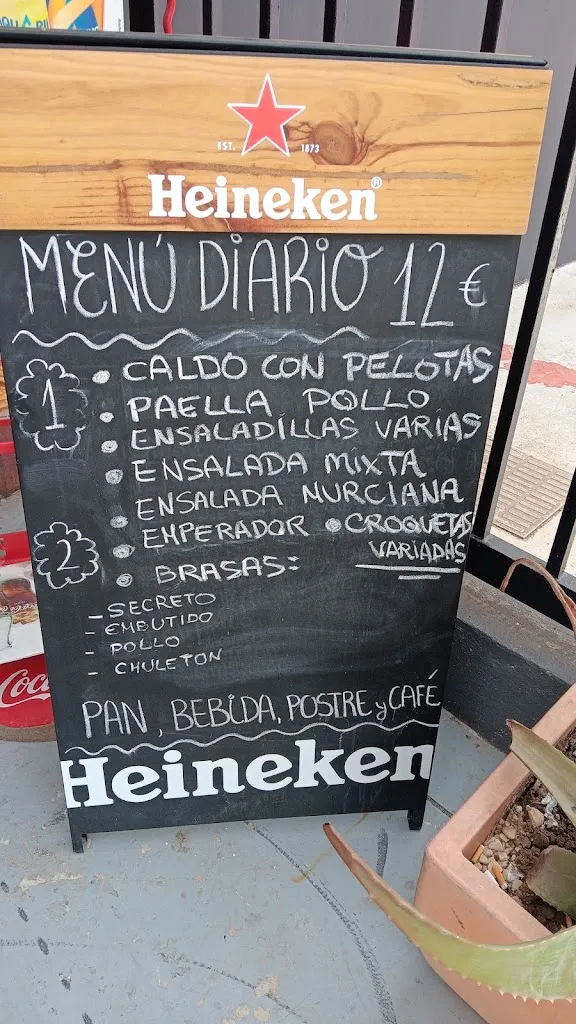 EST. 1873
Heineken®
MENÚ DIARIO 12 €
1
• CALDO CON PELOTAS
• PAELLA POLLO
• ENSALADILLAS VARIAS
• ENSALADA MIXTA
ENSALADA MURCIANA
2
• EMPERADOR • CROQUETAS
VARIADAS
• BRASAS:
- SECRETO
- EMBUTIDO
- POLLO
- CHULETON
PAN, BEBIDA, POSTRE y CAFÉ
Heineken